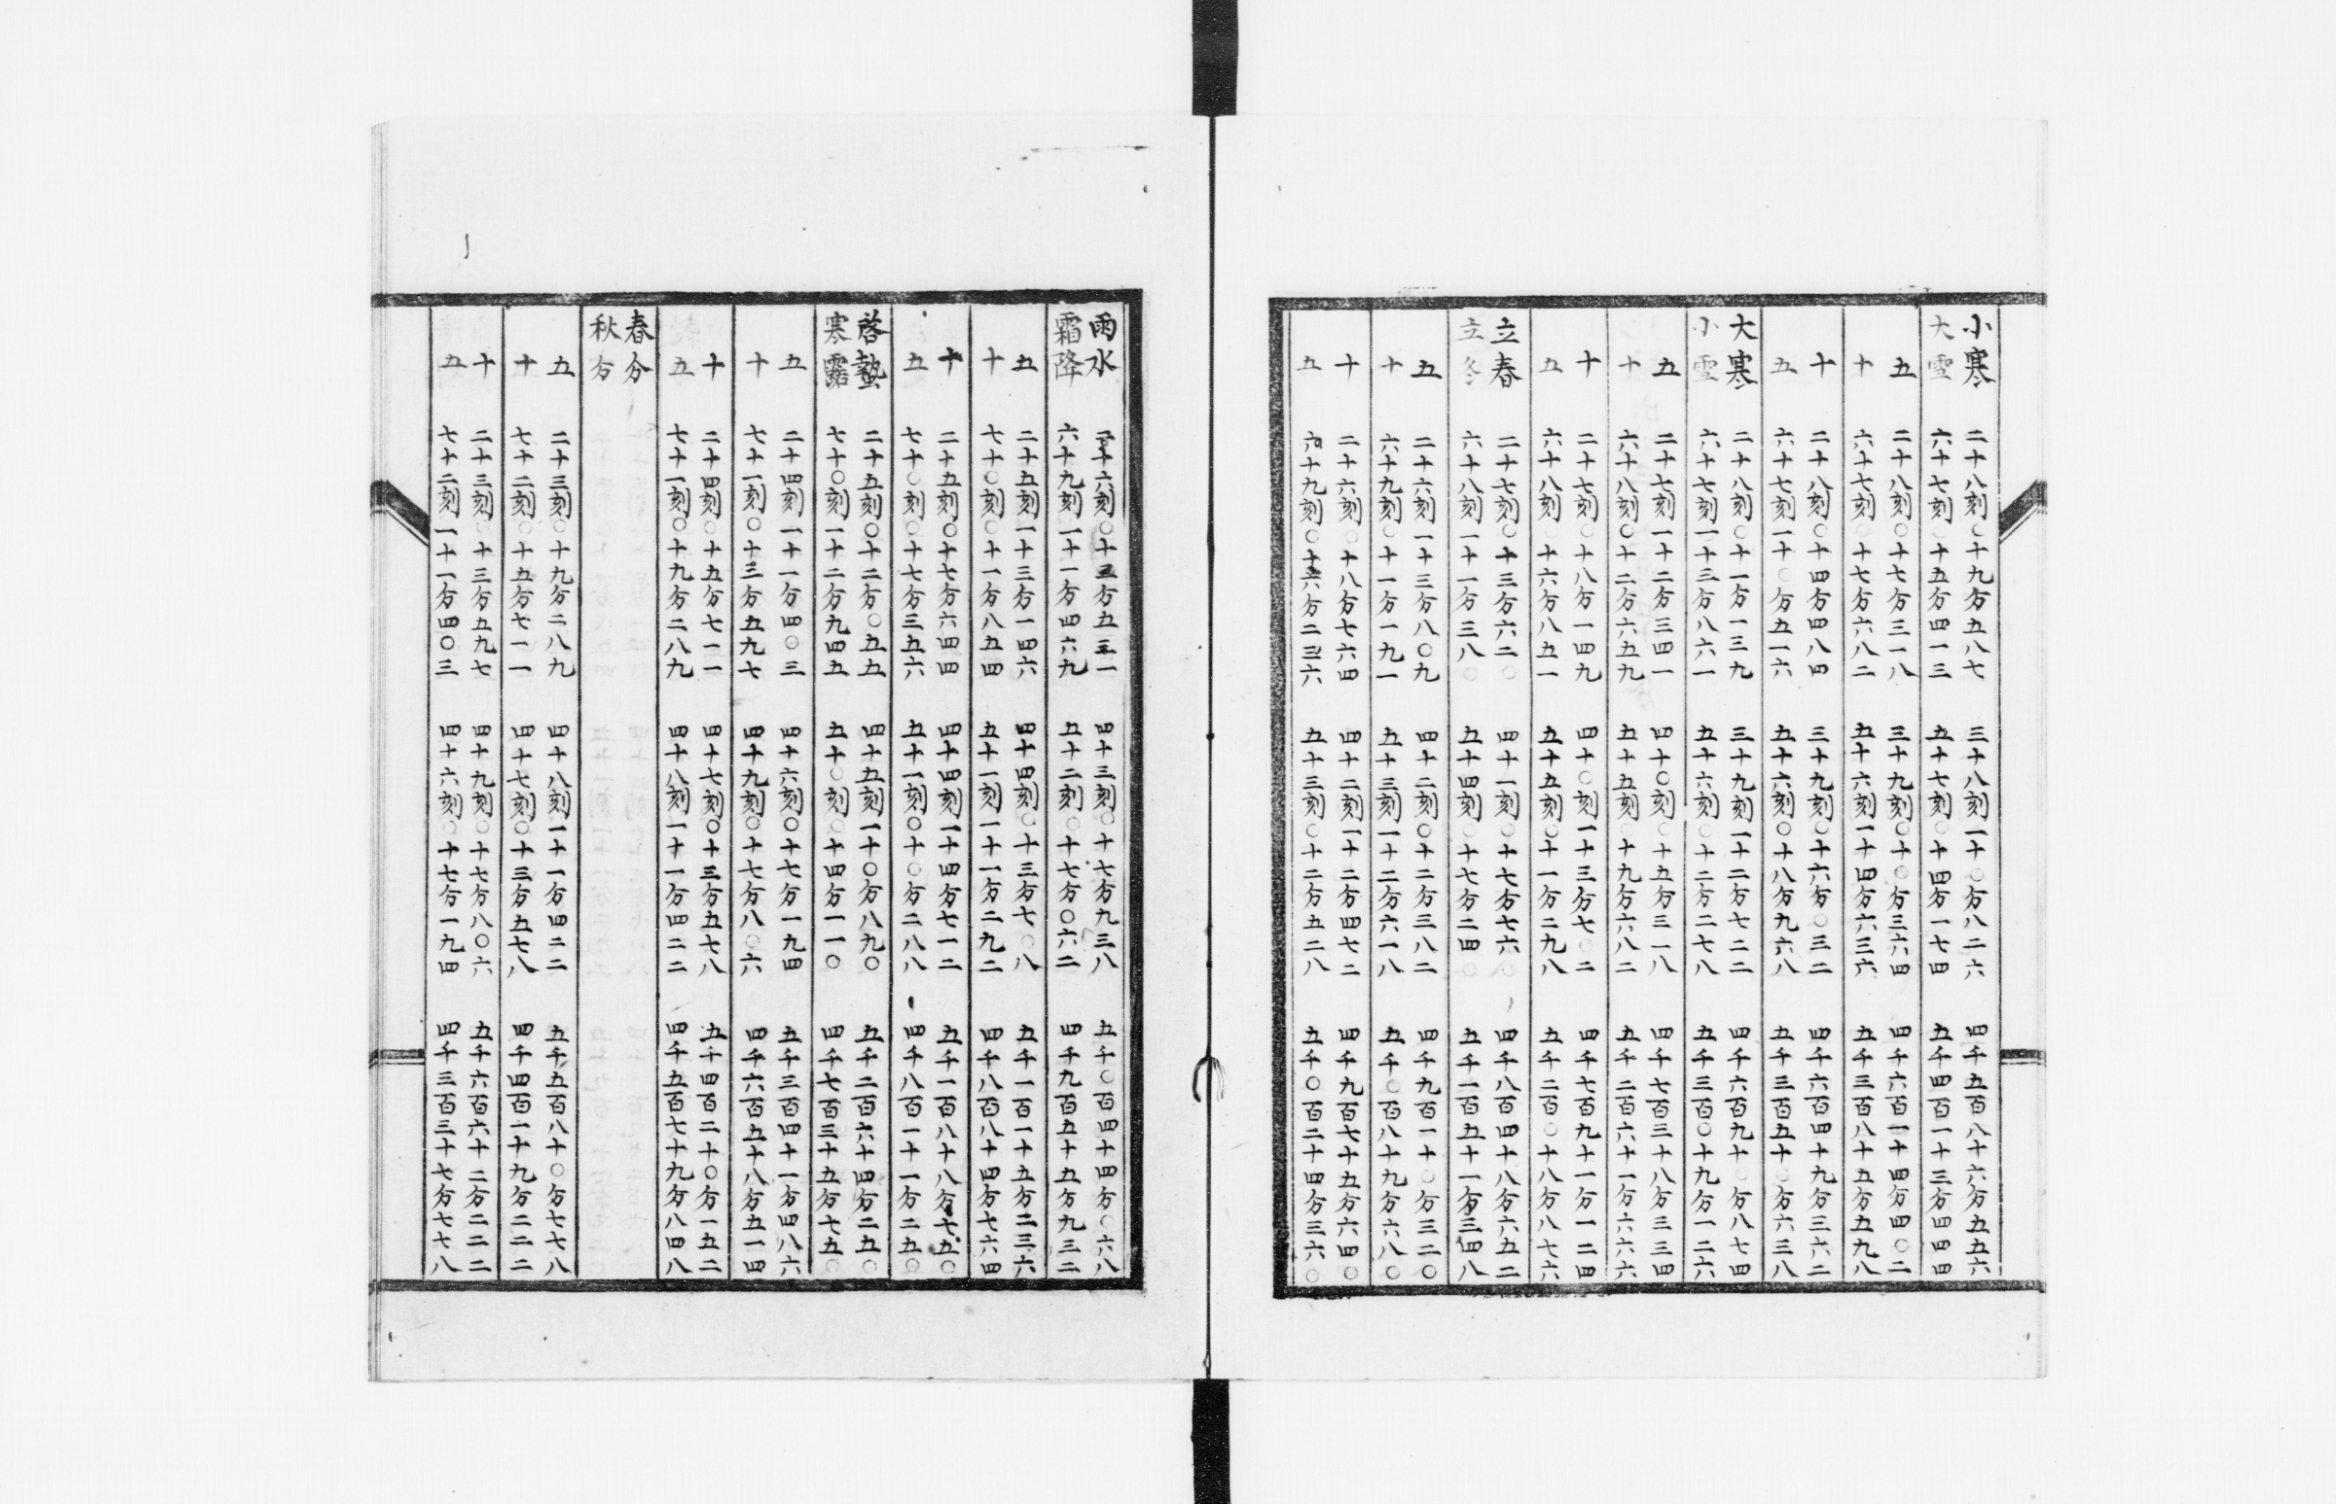 小寒 二十八刻〇十九分五八七 三十八刻一十〇分八二六 四千五百八十六分五五六
大雪 六十七刻〇十五分四一三 五十七刻〇十四分一七四 五千四百一十三分四四四
五 二十八刻〇十七分三一八 三十九刻〇十〇分三六四 四千六百一十四分四〇二
十 六十七刻〇十七分六八二 五十六刻一十四分六三六 五千三百八十五分五九八
十 二十八刻〇十四分四八四 三十九刻〇十六分〇三二 四千六百四十九分三六二
五 六十七刻一十〇分五一六 五十六刻〇十八分九六八 五千三百五十〇分六三八
大寒 二十八刻〇十一分一三九 三十九刻一十二分七二二 四千六百九十〇分八七四
小雪 六十七刻一十三分八六一 五十六刻〇十二分二七八 五千三百〇十九分一二六
五 二十七刻一十二分三四一 四十〇刻〇十五分三一八 四千七百三十八分三三四
十 六十八刻〇十二分六五九 五十五刻〇十九分六八二 五千二百六十一分六六六
十 二十七刻〇十八分一四九 四十〇刻一十三分七〇二 四千七百九十一分一二四
五 六十八刻〇十六分八五一 五十五刻〇十一分二九八 五千二百〇十八分八七六
立春 二十七刻〇十三分六二〇 四十一刻〇十七分七六〇 四千八百四十八分六五二
立冬 六十八刻一十一分三八〇 五十四刻〇十七分二四〇 五千一百五十一分三四八
五 二十六刻一十三分八〇九 四十二刻〇十二分三八二 四千九百一十〇分三二〇
十 六十九刻〇十一分一九一 五十三刻一十二分六一八 五千〇百八十九分六八〇
十 二十六刻〇十八分七六四 四十二刻一十二分四七二 四千九百七十五分六四〇
五 六十九刻〇十六分二三六 五十三刻〇十二分五二八 五千〇百二十四分三六〇
雨水 二十六刻〇十三分五三一 四十三刻〇十七分九三八 五千〇百四十四分〇六八
霜降 六十九刻一十一分四六九 五十二刻〇十七分〇六二 四千九百五十五分九三二
五 二十五刻一十三分一四六 四十四刻〇十三分七〇八 五千一百一十五分二三六
十 七十〇刻〇十一分八五四 五十一刻一十一分二九二 四千八百八十四分七六四
十 二十五刻〇十七分六四四 四十四刻一十四分七一二 五千一百八十八分七五〇
五 七十〇刻〇十七分三五六 五十一刻〇十〇分二八八 四千八百一十一分二五〇
啓蟄 二十五刻〇十二分〇五五 四十五刻一十〇分八九〇 五千二百六十四分二五〇
寒露 七十〇刻一十二分九四五 五十〇刻〇十四分一一〇 四千七百三十五分七五〇
五 二十四刻一十一分四〇三 四十六刻〇十七分一九四 五千三百四十一分四八六
十 七十一刻〇十三分五九七 四十九刻〇十七分八〇六 四千六百五十八分五一四
十 二十四刻〇十五分七一一 四十七刻〇十三分五七八 五千四百二十〇分一五二
五 七十一刻〇十九分二八九 四十八刻一十一分四二二 四千五百七十九分八四八
春分
秋分
五 二十三刻〇十九分二八九 四十八刻一十一分四二二 五千五百八十〇分七七八
十 七十二刻〇十五分七一一 四十七刻〇十三分五七八 四千四百一十九分二二二
十 二十三刻〇十三分五九七 四十九刻〇十七分八〇六 五千六百六十二分二二二
五 七十二刻一十一分四〇三 四十六刻〇十七分一九四 四千三百三十七分七七八